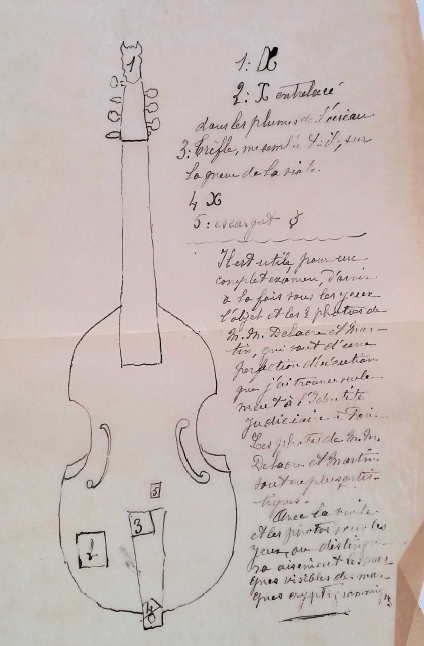 1: X
2: X entrelacé
dans les plumes de l'oiseau
3: Trèfle, me semble t-il, sur
la queue de la viole
4 X
5: escargot
Il est utile, pour un
complet examen, d'avoir
à la fois sous les yeux
l'objet et les 8 photos de
M.M. Delacre et Mar-
tin, qui sont d'une
perfection d'exécution
que j'ai trouvée seule-
ment à l'Identité
Judiciaire à Paris.
Les photos de M.M.
Delacre et Martin
sont
tiques.
Avec la viole
et les photos sous les
yeux, on distingue-
ra aisément les mar-
ques visibles des mar-
ques
1
2
3
4
5